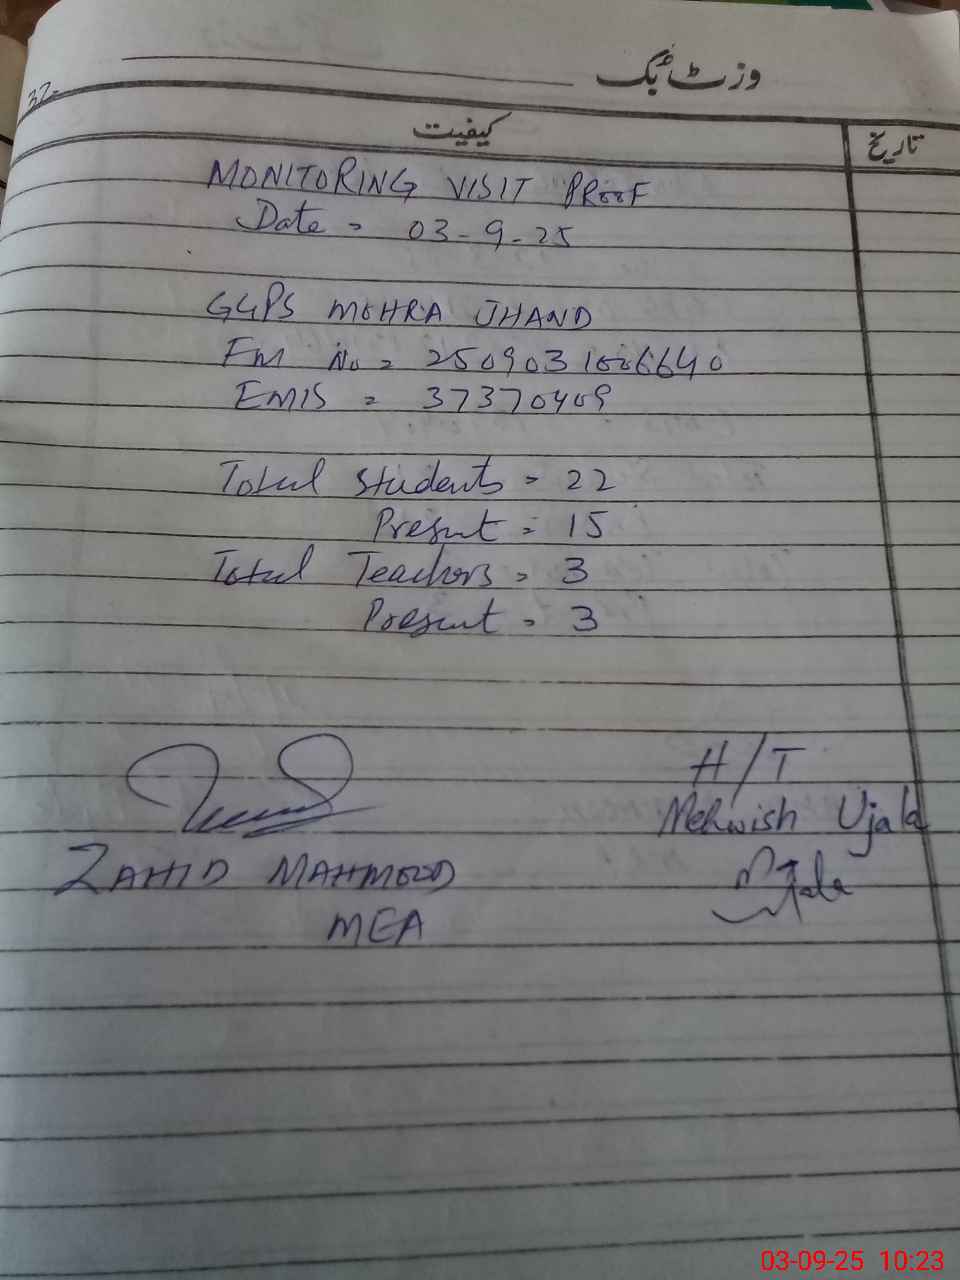 وزٹ بک
37-
کیفیت
تاریخ
MONITORING VISIT PROOF
Date = 03-9-25
GGPS MOHRA JHAND
FM No = 2509031006640
EMIS = 37370409
Total Students = 22
Present = 15
Total Teachers = 3
Present = 3
H/T
Mehwish Ujala
ZAHID MAHMOOD
MEA
03-09-25 10:23